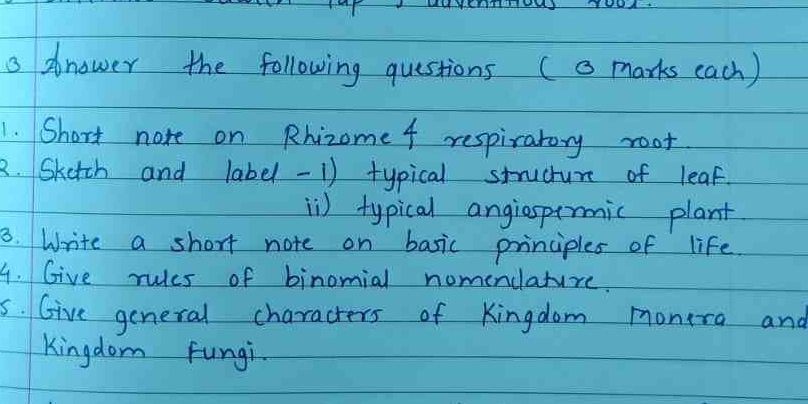 tap & adventitious root.
3 Answer the following questions ( 3 marks each)
1. Short note on Rhizome & respiratory root.
2. Sketch and label - i) typical structure of leaf.
ii) typical angiospermic plant.
3. Write a short note on basic principles of life.
4. Give rules of binomial nomenclature.
5. Give general characters of Kingdom Monera and
Kingdom Fungi.